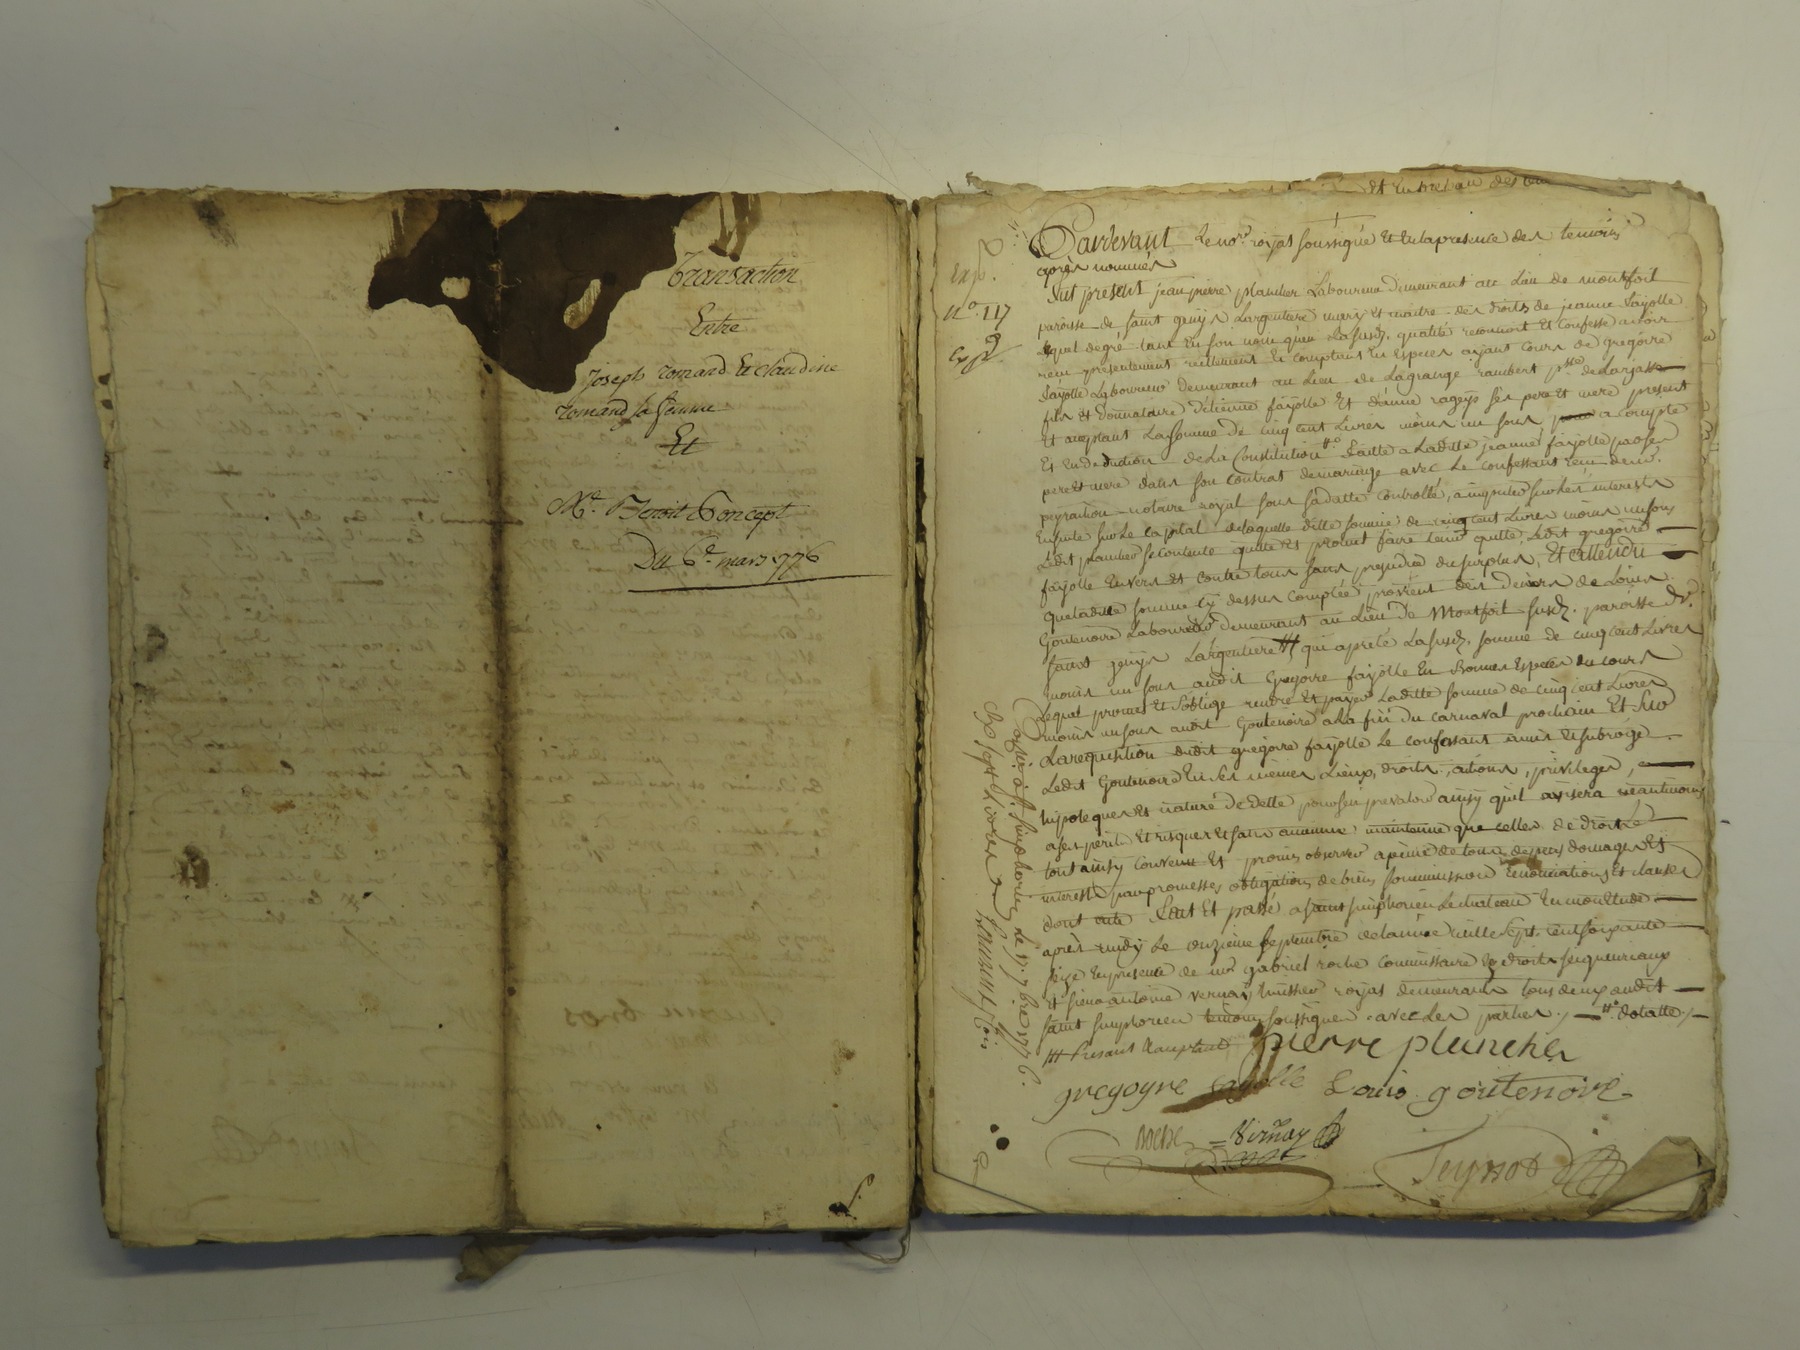 Transaction
Entre
Joseph romand Et claudine
romand sa femme
Et
Mr. Benoit Poncept
Du 6e. mars 1776
et
exp.
no. 117
exp
Pardevant Le nore. royal soussigné Et En la presence des temoins
après nommés
fut present jean pierre plancher Laboureur Demeurant au Lieu de montfort
paroisse de saint genys Largentiere mary Et maitre des droits de jeanne fayolle
Lequel de gré tant En son nom qu'en La susd. qualité reconnoit Et Confesse avoir
recu presentement reellement Et comptant En Especes ayant Cours de gregoire
fayolle Laboureur Demeurant au Lieu de Lagrange rambert psse. de Larjasse
fils Et Donnataire d'étienne fayolle Et d'anne rageys ses pere Et mere present
Et acceptant La somme de cinq cent Livres moins un sous a Compte
Et En deduction de La Constitution faitte a Laditte jeanne fayolle par ses
pere Et mere dans son Contrat de mariage avec Le Confessant recu de me.
peyrachon notaire royal sous sa datte Controllé, a imputer sur les interets
Ensuite sur Le Capital de laquelle ditte somme de cinq cent Livres moins un sous
Ledit plancher se Contente quitte Et promet faire tenir quitte Ledit gregoire
fayolle Envers Et Contre tous sans prejudice du surplus, Et attendu
que laditte somme Cy dessus Comptée provient des Deniers de Louis
Goutenoire Laboureur Demeurant au Lieu De Montfort susd. paroisse de.
saint genys Largentiere qui a preté La susd. somme de cinq cent Livres
moins un sous audit Gregoire fayolle En Bonnes Especes du cours
Lequel promet Et s'oblige rendre Et payer Laditte somme de cinq cent Livres
moins un sous audit Goutenoire a La fin du carnaval prochain Et sur
La requisition dudit gregoire fayolle Le confessant a mis Et subrogé
Ledit Goutenoire En ses mêmes Lieux, droits, actions, privileges,
hypoteques Et nature de dette pour s'en prevaloir ainsy qu'il avisera neantmoins
a ses perils Et risques Et sans aucune maintenue que celles de droit
tout ainsy Convenu Et promis observer a peine de tous depens domages Et
interests par promesses obligations de biens soummissions renonciations Et clauses
dont acte fait Et passé a saint simphorien Le chateau En mon Etude
après midy Le onzieme septembre de l'année mille sept cent soixante
seize En presence de mr. gabriel roche Commissaire Es droits seigneuriaux
Et sieur antoine vernay huissier royal demeurants tous deux audit
saint simphorien temoins soussignés avec Les parties ./. dotalle ./.
present acceptant
pierre pluncher
gregoyre fayolle Louis goutenoire
roche Virnay
Teyssot
Controllé a St. simphorien le 17. 7bre 1776.